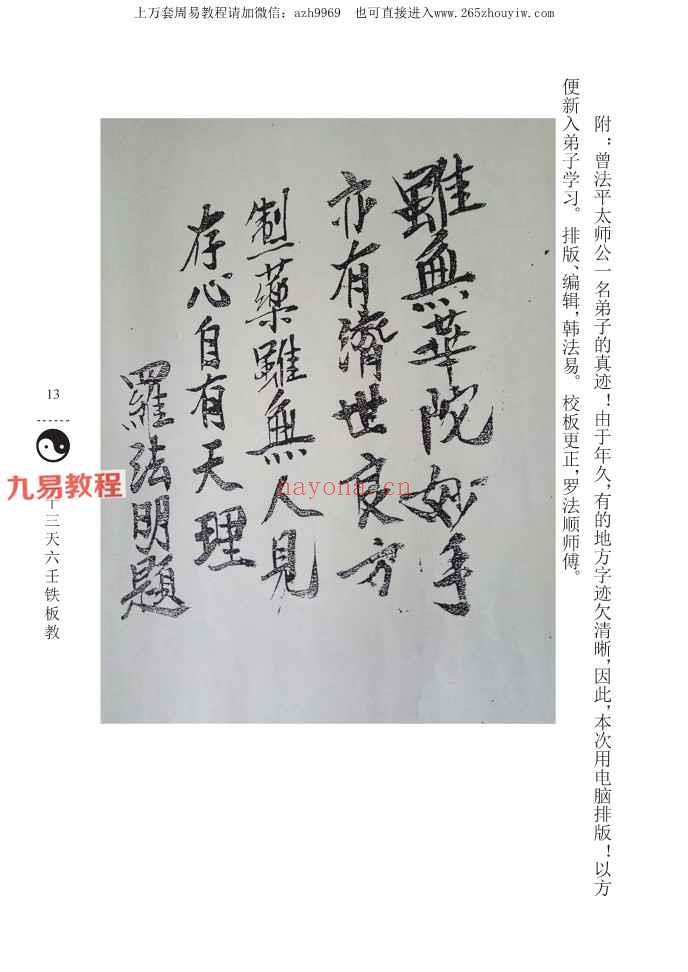 上万套周易教程请加微信：azh9969 也可直接进入www.265zhouyiw.com
附：曾法平太师公一名弟子的真迹！由于年久，有的地方字迹欠清晰，因此，本次用电脑排版！以方
便新入弟子学习。 排版、编辑，韩法易。 校板更正，罗法顺师傅。
雖無華院妙手
亦有濟世良方
製藥雖無人見
存心自有天理
羅法明題
hayona.cn
13
九易教程
十三天六壬铁板教